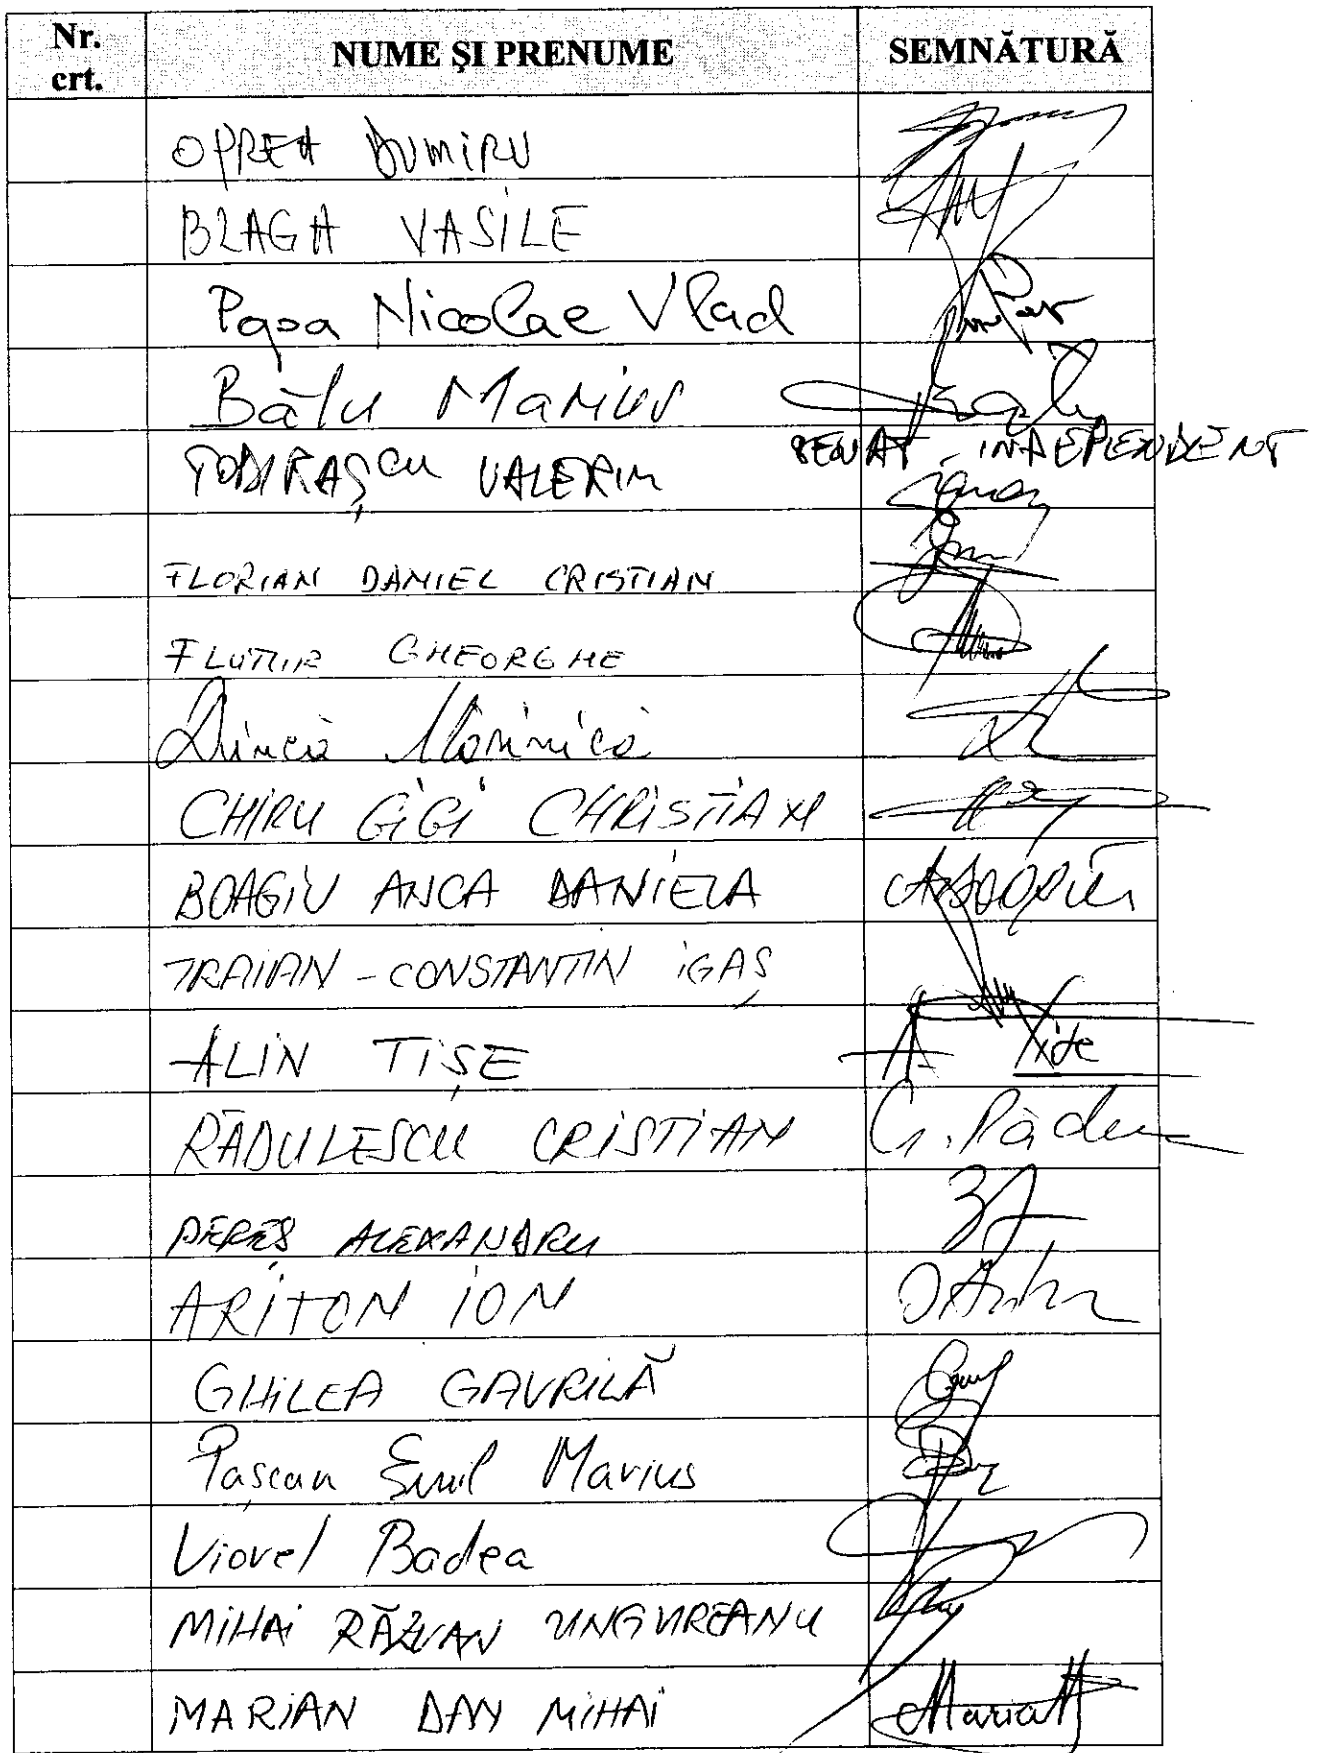 Nr. crt. NUME ȘI PRENUME SEMNĂTURĂ
OPREA DUMIRU
BLAGA VASILE
Popa Nicolae Vlad
Bâlu Marius
TODIRAȘCU VALERIU SENAT. INDEPENDENT
FLORIAN DANIEL CRISTIAN
FLUTUR GHEORGHE
Dincă Mărinică
CHIRU GIGI CHRISTIAN
BOAGIU ANCA DANIELA
TRAIAN-CONSTANTIN IGAȘ
ALIN TIȘE
RĂDULESCU CRISTIAN
PEREȘ ALEXANDRU
ARITON ION
GHILEA GAVRILĂ
Pașcan Emil Marius
Viorel Badea
MIHAI RĂZVAN UNGUREANU
MARIAN DAN MIHAI